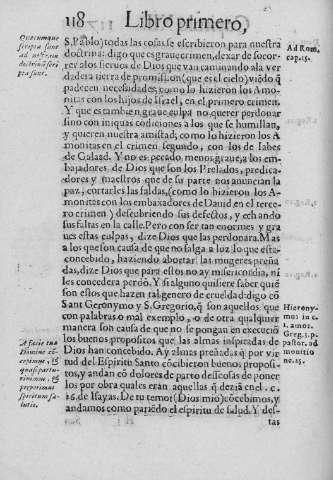 118 Libro primero,
S. Pablo) todas las cosas se escribieron para nuestra
doctrina: digo que es graue crimen, dexar de socor-
rer a los sieruos de Dios que van caminando a la ver
dadera tierra de promission (que es el cielo) viēdo q̃
padecen necessidades; como lo hizieron los Amo-
nitas con los hijos de Israel, en el primero crimen.
Y que es tambien graue culpa no querer perdonar
sino con iniquas condiciones a los que se humillan,
y quieren nuestra amistad; como lo hizieron los A
monitas en el crimen segundo, con los de Iabes
de Galaad. Y no es pecado menos graue, a los em-
bajadores de Dios que son los Prelados, predica-
dores y maestros que de su parte nos anuncian la
paz, cortarles las faldas, (como lo hizieron los A-
monitas con los embaxadores de Dauid, en el terce-
ro crimen) descubriendo sus defectos, y echando
sus faltas en la calle. Pero con ser tan enormes y gra
ues estas culpas, dize Dios que las perdonara. Mas
a los que son causa de que no salga a luz lo que esta
concebido, haziendo abortar las mugeres preña
das, dize Dios que para estos no ay misericordia, ni
les concedera perdō. Y si alguno quisiere saber quiē
son estos que hazen tal genero de crueldad: digo cō
Sant Geronymo y S. Gregorio, q̃ son aquellos que
con palabras o mal exemplo, o de otra qualquer
manera son causa de que no se pongan en execuciō
los buenos propositos que las almas inspiradas de
Dios han concebido. Ay almas preñadas q̃ por vir
tud del Espiritu Santo cōcibieron buenos proposi-
tos, y andan cō dolores de parto desseosas de poner
los por obra quales eran aquellas q̃ dezia en el. c.
26. de Isayas. De tu temor (Dios mio) cōcebimos, y
andamos como pariēdo el espiritu de salud. Y des-
tas
Quæcumque
scripta sunt
ad nostram
doctrinā scri
pta sunt.
A facie tua
Domine cō-
cepimus, &
quasi partu-
riuimus, &
peperimus
spiritum sa-
lutis.
Ad Rom.
cap. 15.
Hierony-
mus in c.
1. amos.
Greg. 3. p.
pastor. ad
monitio
ne. 25.